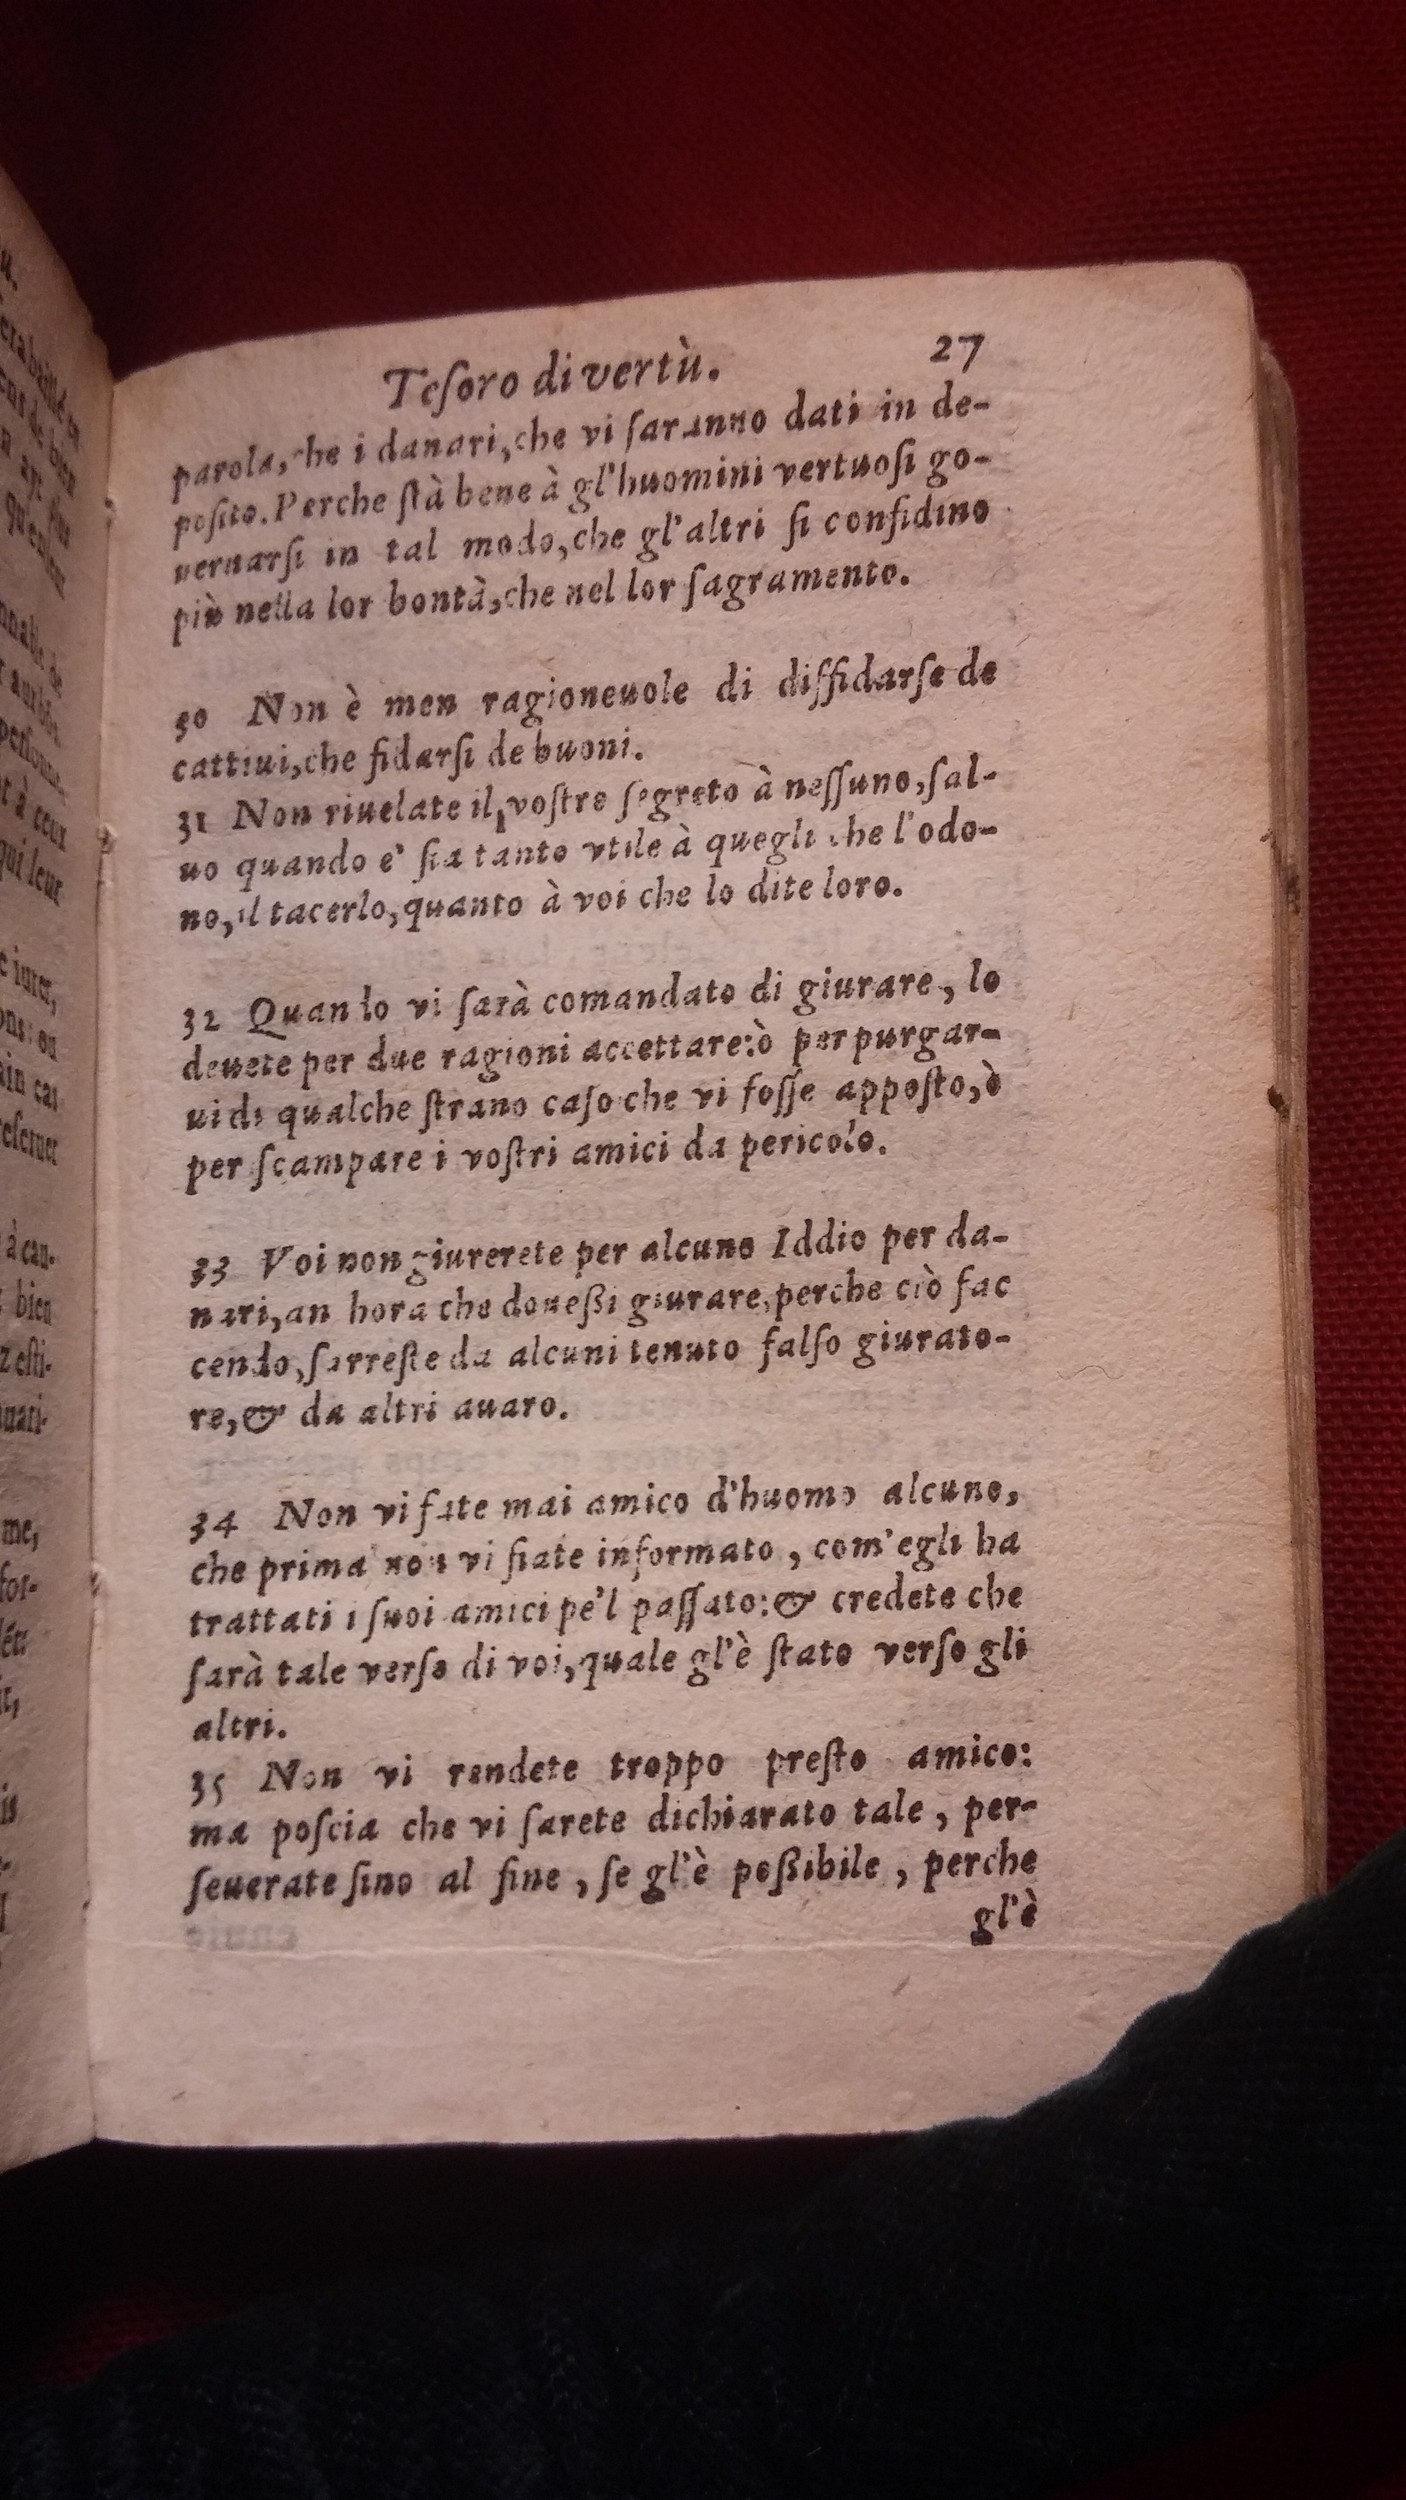 Teſoro di vertù. 27
parola, che i danari, che vi ſaranno dati in de-
poſito. Perche ſtà bene à gl'huomini vertuoſi go-
uernarſi in tal modo, che gl'altri ſi confidino
più nella lor bontà, che nel lor ſagramento.
30 Non è men ragioneuole di diffidarſe de
cattiui, che fidarſi de buoni.
31 Non riuelate il voſtro ſegreto à neſſuno, ſal-
uo quando e' ſia tanto vtile à quegli che l'odo-
no, il tacerlo, quanto à voi che lo dite loro.
32 Quando vi ſarà comandato di giurare, lo
deuete per due ragioni accettare: ò per purgar-
ui di qualche ſtrano caſo che vi foſſe appoſto, ò
per ſcampare i voſtri amici da pericolo.
33 Voi non giurerete per alcuno Iddio per da-
nari, an hora che doueßi giurare, perche ciò fac
cendo, ſarreſte da alcuni tenuto falſo giurato-
re, & da altri auaro.
34 Non vi fate mai amico d'huomo alcuno,
che prima non vi ſiate informato, com'egli ha
trattati i ſuoi amici pe'l paſſato: & credete che
ſarà tale verſo di voi, quale gl'è ſtato verſo gli
altri.
35 Non vi rendete troppo preſto amico:
ma poſcia che vi ſarete dichiarato tale, per-
ſeuerate ſino al fine, ſe gl'è poßibile, perche
gl'è